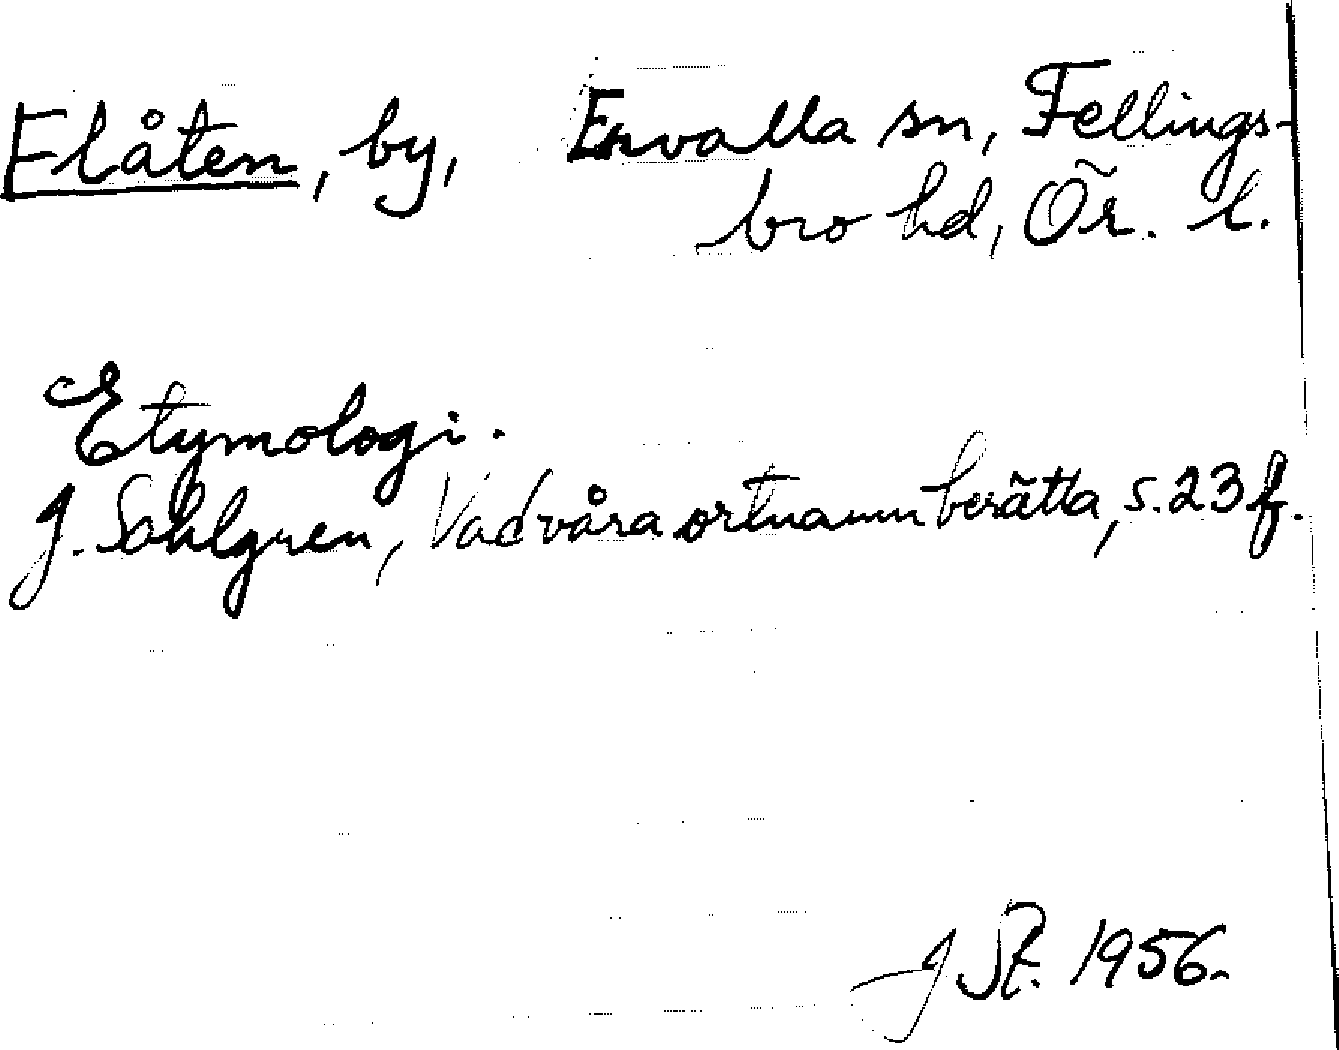 Elåten, by, Ervalla sn, Fellings-
bro hd, Ör. l.
Etymologi.
J. Sahlgren, Vad våra ortnamn berätta, s. 23 f.
J St. 1956.